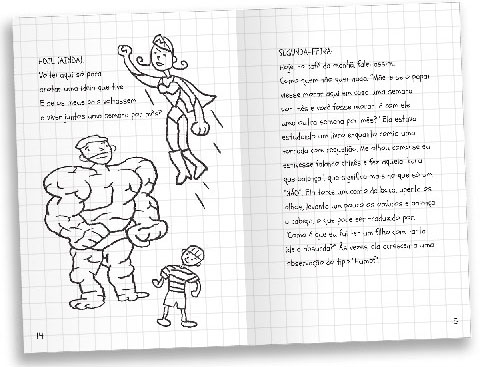 HOJE (AINDA).
Voltei aqui só para
anotar uma ideia que tive.
E se os meus pais voltassem
a viver juntos uma semana por mês?
14
SEGUNDA-FEIRA.
Hoje, no café da manhã, falei assim,
como quem não quer nada: "Mãe, e se o papai
viesse morar aqui em casa uma semana
por mês e você fosse morar com ele
uma outra semana por mês?" Ela estava
estudando um livro enquanto comia uma
torrada com requeijão. Me olhou como se eu
estivesse falando chinês e fez aquela "cara
que balança", que significa mais do que só um
"NÃO". Ela torce um canto da boca, aperta os
olhos, levanta um pouco os ombros e balança
a cabeça, o que pode ser traduzido por:
"Como é que eu fui ter um filho com
ideia absurda?" Às vezes, ela acrescenta uma
observação do tipo "Humpf".